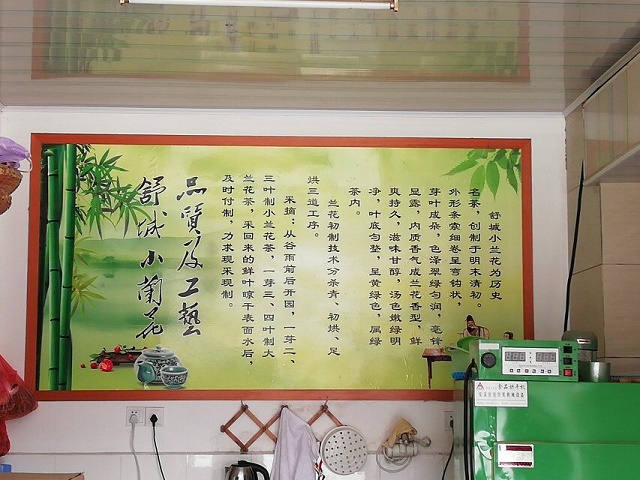 舒城小兰花为历史
名茶，创制于明末清初。
外形条索细卷呈弯钩状，
芽叶成朵，色泽翠绿匀润，毫锋
显露，内质香气成兰花香型，鲜
爽持久，滋味甘醇，汤色嫩绿明
净，叶底匀整，呈黄绿色，属绿
茶内。
兰花初制技术分杀青、初烘、足
烘三道工序。
采摘：从谷雨前后开园，一芽二、
三叶制小兰花茶，一芽三、四叶制大
兰花茶，采回来的鲜叶晾干表面水后，
及时付制，力求现采现制。
品質及工藝
舒城小蘭花
食品烘干机